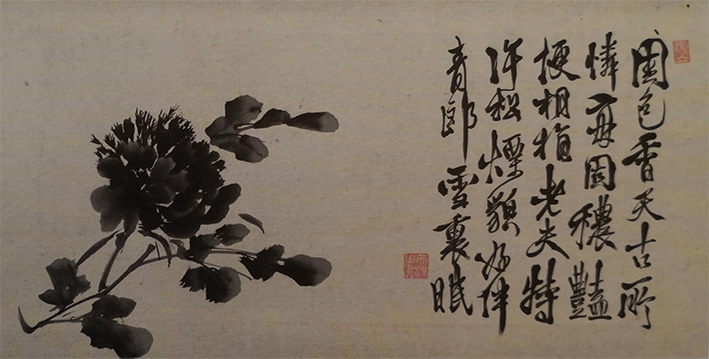 國色香天古所
憐毎因穠豔
相捐老夫特
許松煙貌好伴
青郎雪裏眠